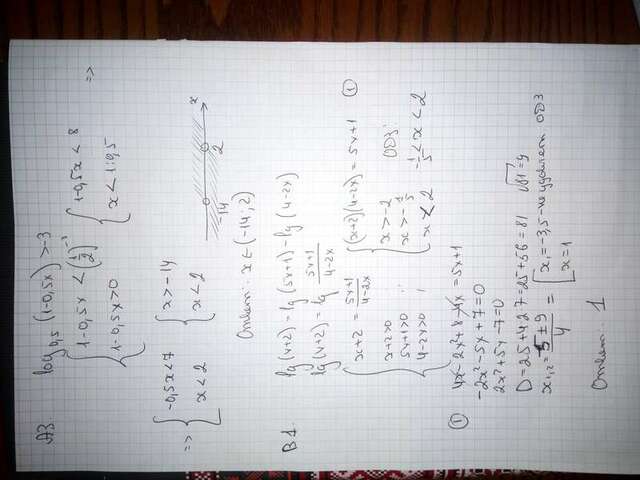 А3. log₀,₅ (1-0,5x) > -3
{ 1-0,5x < (1/2)⁻³ { 1-0,5x < 8 =>
1-0,5x>0 x < 1:0,5
=> { -0,5x<7 { x > -14
x < 2 x < 2
-14 2 x
Ответ: x ∈ (-14; 2)
В1. lg (x+2) = lg (5x+1) - lg (4-2x)
lg (x+2) = lg (5x+1)/(4-2x)
{ x+2 = (5x+1)/(4-2x) { (x+2)(4-2x) = 5x+1 ①
x+2>0 x > -2 ОДЗ:
5x+1>0 x > -1/5 -1/5 < x < 2
4-2x>0 x < 2
① 4x - 2x² + 8 - 4x = 5x+1
-2x² - 5x + 7 = 0
2x² + 5x - 7 = 0
D = 25 + 4·2·7 = 25 + 56 = 81 √81 = 9
x₁,₂ = (5 ± 9)/4 = [ x₁ = -3,5 - не удовлет ОДЗ
x = 1
Ответ: 1